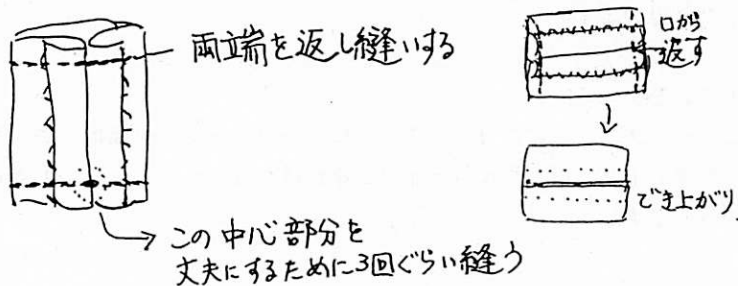 両端を返し縫いする
この中心部分を
丈夫にするために3回ぐらい縫う
口から
返す
でき上がり